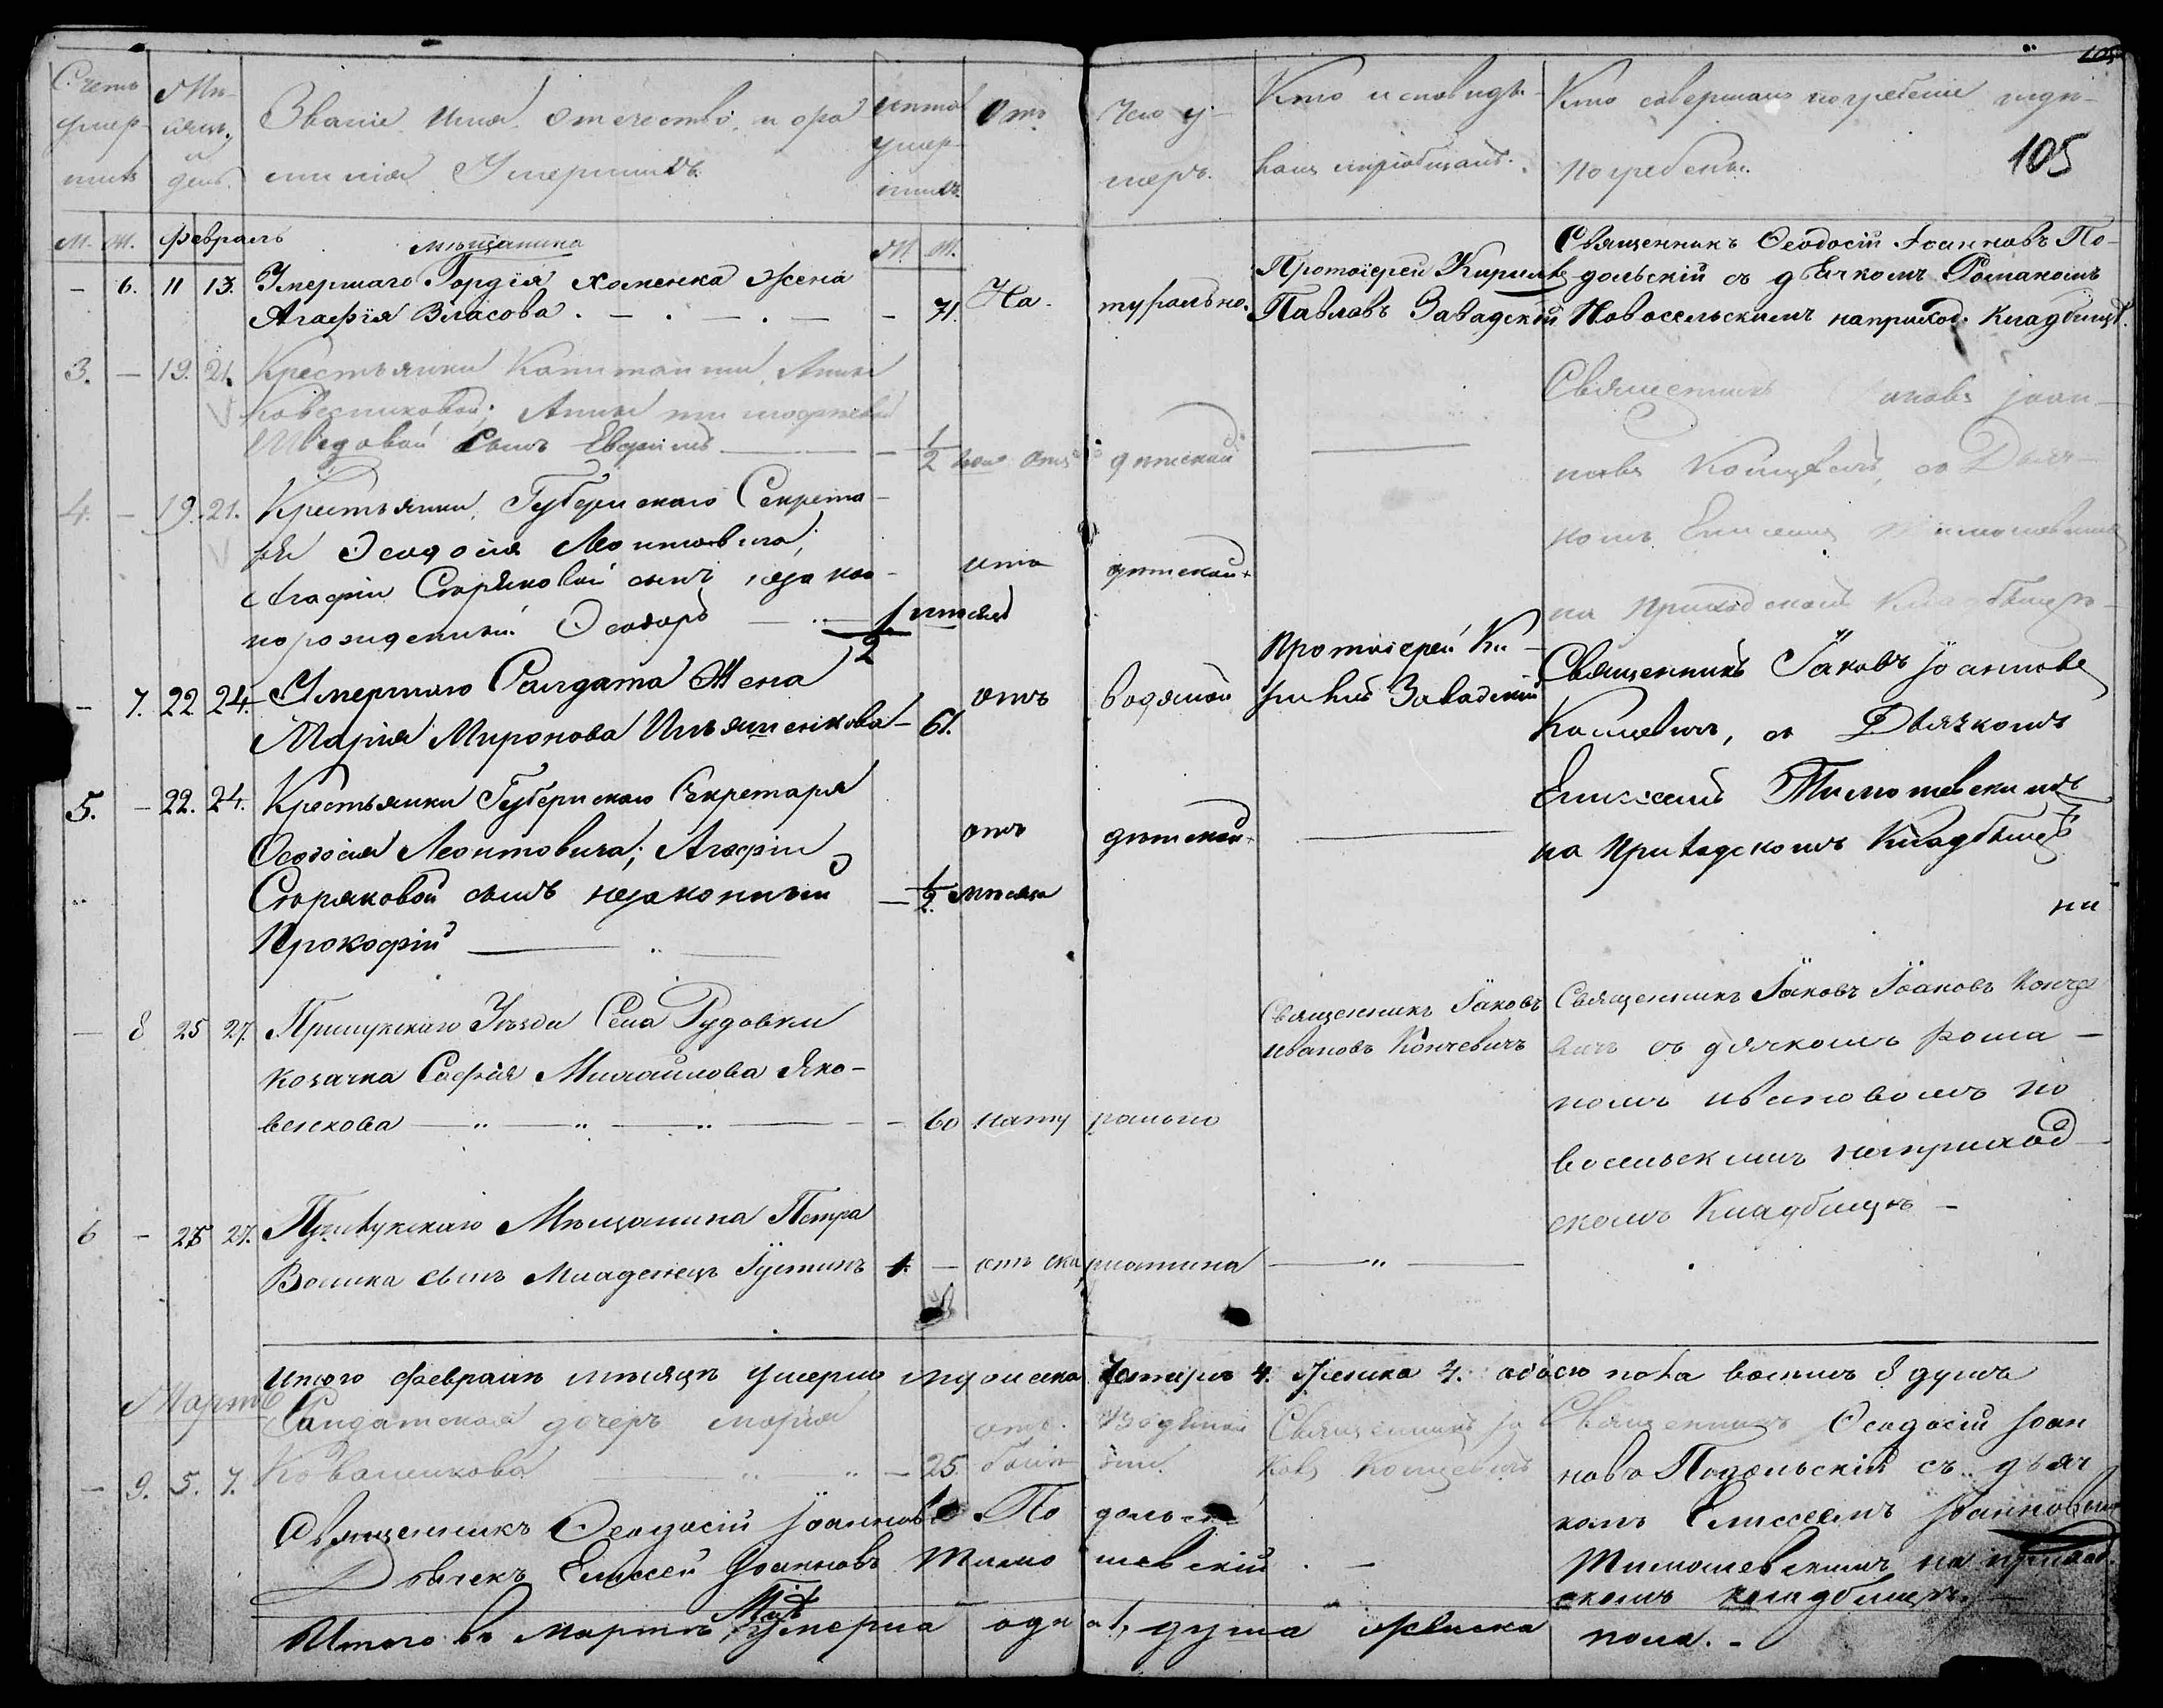 105
Счетъ умер- шихъ
Мѣ- сяцъ и день.
Званіе, Имя, отечество, и фа
миліи Умершихъ.
лѣта умер- шихъ
Отъ
Чего у-
меръ.
Кто исповѣды-
валъ и пріобщалъ.
Кто совершалъ погребеніе и гдѣ-
погребены.
105
М. Ж. Февраль М. Ж.
мѣщанина
- 6. 11 13. Умершаго Гордія Хоменка жена
Агафія Власова. - . - . - - 71. На- турально.
Протоіерей Кириллъ
Павловъ Завадскій
Священникъ Ѳеодосій Іоанновъ По-
дольскій съ дьячкомъ Романомъ
Новосельскимъ на приход. Кладбищѣ.
3. - 19. 21. Крестьянки Капитанши, Анны
Анны
Шведовой сынъ Евфимъ - 1/2 дѣтской
4. - 19. 21. Крестьянки, Губернскаго Секрета-
ря Ѳеодосія Леонтовича;
Агафіи Стряковой сынъ незакон-
норожденный Ѳеодоръ 1/2 мѣсяца
дѣтской
Священникъ Іаковъ Іоан-
новъ Кончевичъ, съ Дьяч-
комъ Елисеемъ Тимошевскимъ
на Приходскомъ Кладбищѣ-
- 7. 22 24. Умершаго Салдата Жена
Марія Миронова Ильяшенкова - 61. отъ водяной
Протоіерей Ки-
риллъ Завадскій
Священникъ Іаковъ Іоанновъ
Кончевичъ, съ Дьячкомъ
Елисеемъ Тимошевскимъ
на Приходскомъ Кладбищѣ
5. - 22. 24. Крестьянки Губернскаго Секретаря
Ѳеодосія Леонтовича; Агафіи
Стряковой сынъ незаконный - 1/2 мѣсяца
Прокофій
отъ дѣтской
- 8 25 27. Прилукскаго Уѣзда Села Рудовки
козачка Софія Михайлова Яко-
венкова - 60 нату рально
Священникъ Іаковъ
Ивановъ Кончевичъ
Священникъ Іаковъ Іоановъ Конче
вичъ съ дячкомъ Рома-
номъ Ивановомъ Но
восельскимъ на приход-
скомъ Кладбищѣ-
6 - 25 27. Прилукскаго Мѣщанина Петра
Волика сынъ Младенецъ Іустинъ 1. - отъ ска рлатина
Итого Февраля мѣсяцѣ умерло мужеска четыре 4. женска 4. обоего пола восемъ 8 душъ
Мартъ
- 9. 5. 7. Салдатская дочерь Марія
Коваленкова - 25.
отъ водяной болѣзни.
Священникъ Іа
ковъ Кончевичъ
Священникъ Ѳеодосій Іоан
новъ Подольскій съ дьяч
комъ Елисеемъ Іоанновымъ
Тимошевскимъ на приход
скомъ кладбищѣ.
Священникъ Ѳеодосій Іоанновъ По дольскій
Дьячекъ Елисей Іоанновъ Тимо шевскій. -
Итого въ Мартѣ М-цѣ умерла одн а 1, душа женска пола. -